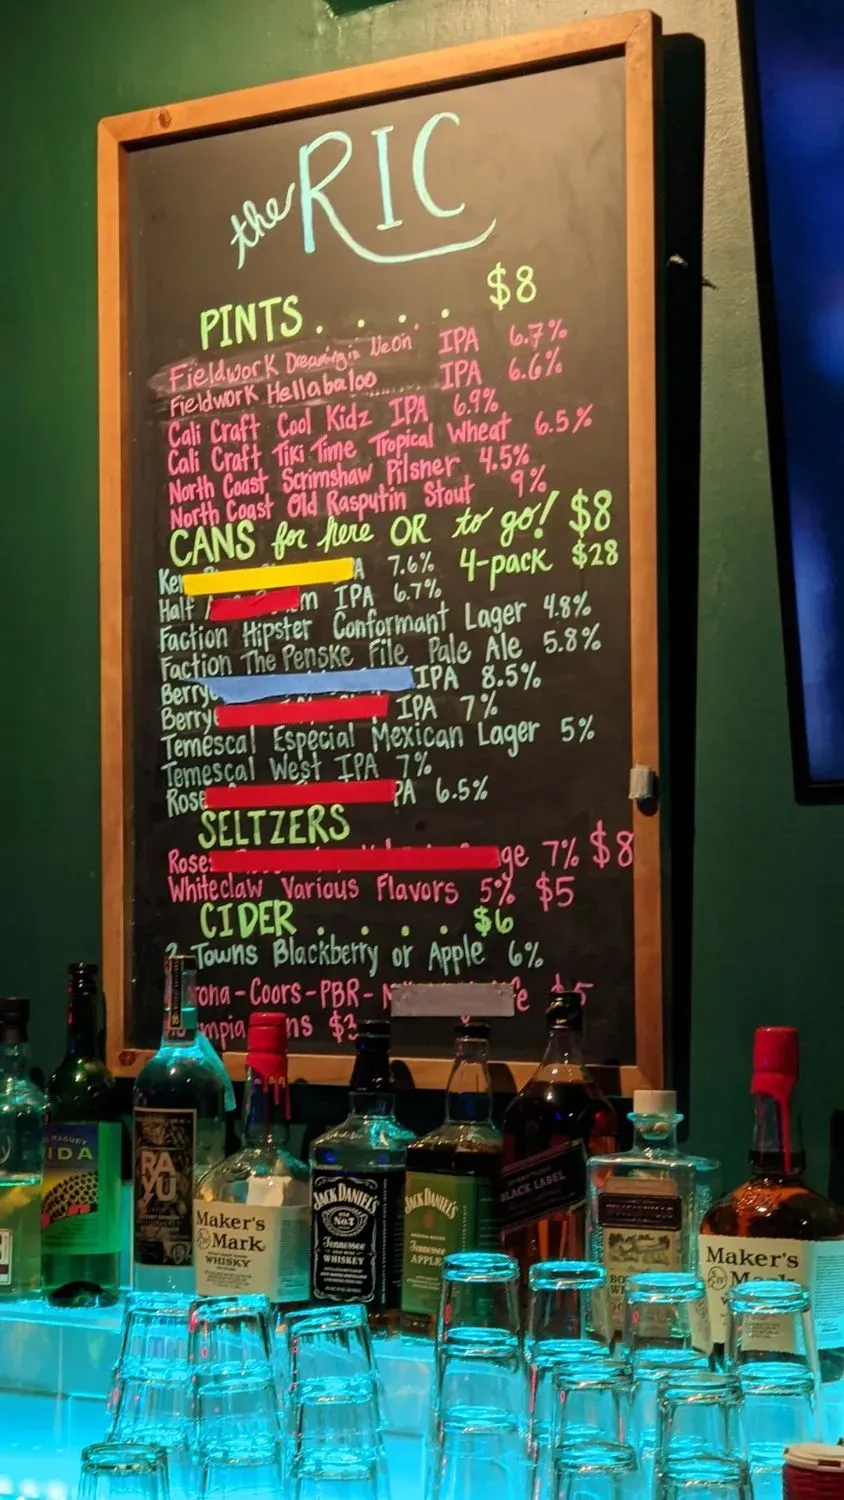 the RIC
PINTS . . . . $8
Fieldwork Dreaming in Neon IPA 6.7%
Fieldwork Hellabaloo IPA 6.6%
Cali Craft Cool Kidz IPA 6.9%
Cali Craft Tiki Time Tropical Wheat 6.5%
North Coast Scrimshaw Pilsner 4.5%
North Coast Old Rasputin Stout 9%
CANS for here OR to go! $8
7.6% 4-pack $28
Half IPA 6.7%
Faction Hipster Conformant Lager 4.8%
Faction The Penske File Pale Ale 5.8%
IPA 8.5%
IPA 7%
Temescal Especial Mexican Lager 5%
Temescal West IPA 7%
6.5%
SELTZERS
7% $8
Whiteclaw Various Flavors 5% $5
CIDER . . . . $6
Towns Blackberry or Apple 6%
-Coors-PBR-
$3
RAYU
Maker's
Mark
WHISKY
JACK DANIEL'S
Old
No.7
Tennessee
WHISKEY
JACK DANIEL'S
Tennessee
APPLE
BLACK LABEL
Maker's
Mark